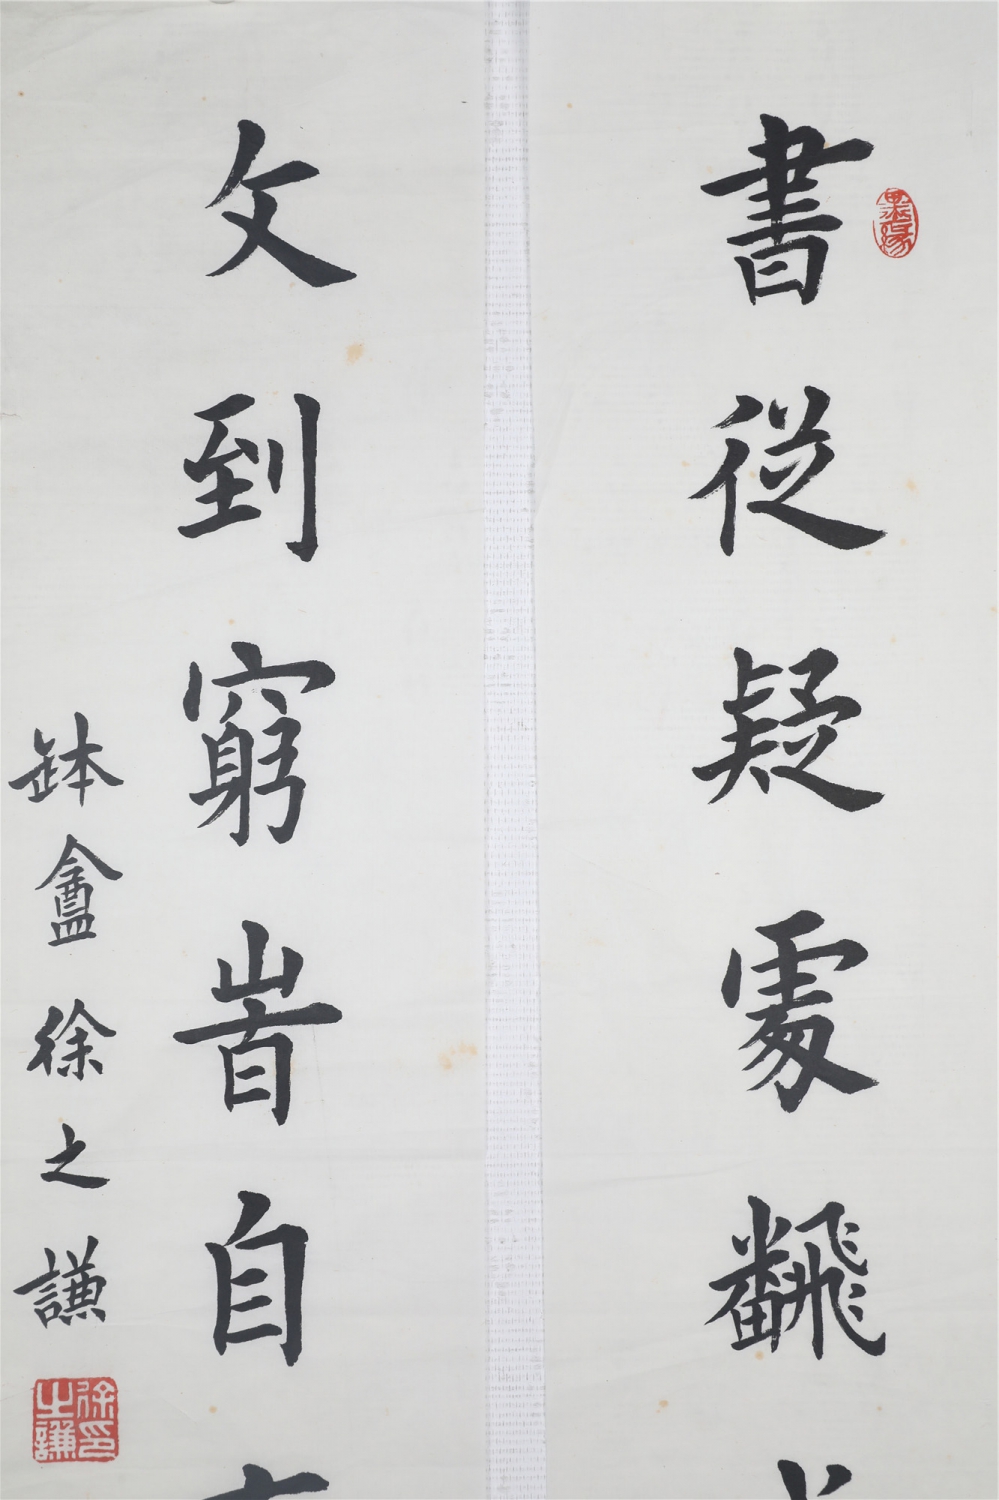 書從疑處飜
文到窮旹自
缽盦徐之謙
徐印之謙